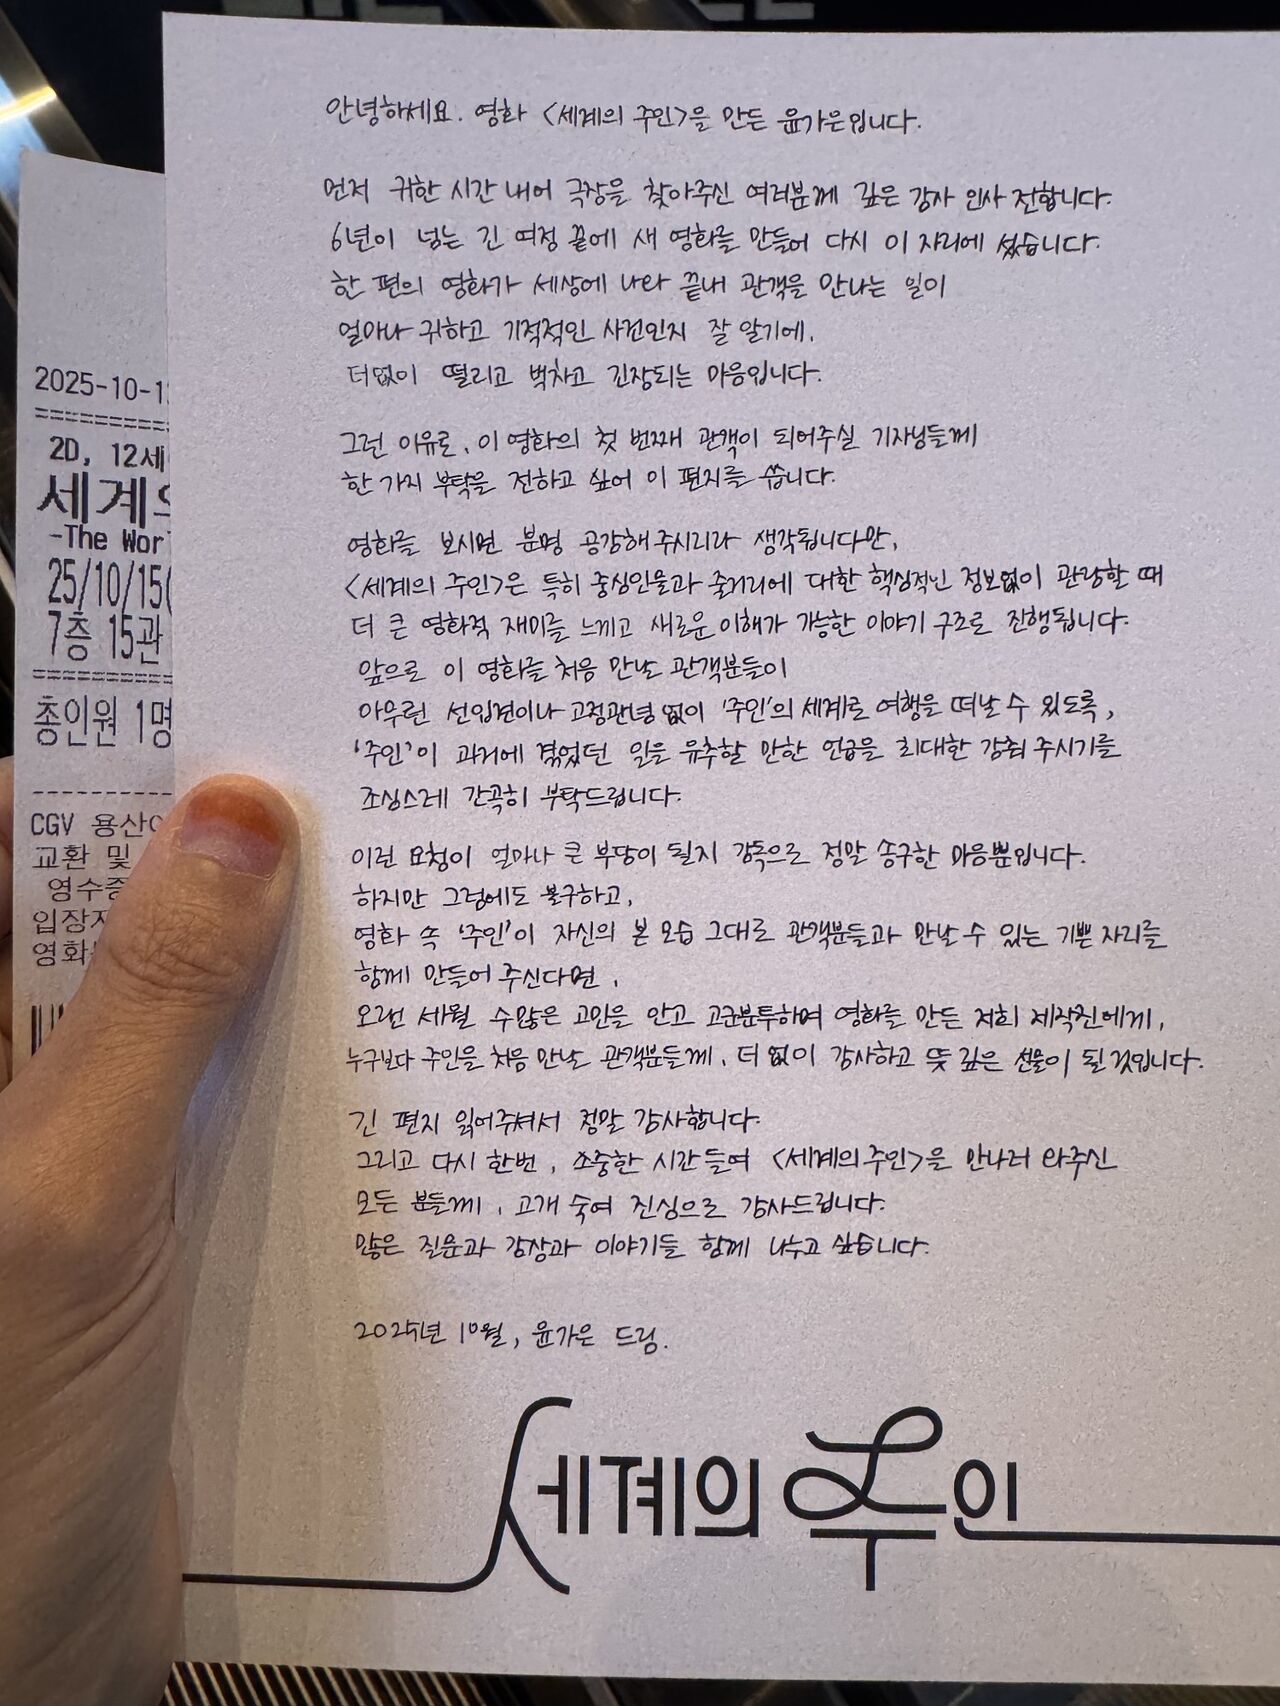 안녕하세요. 영화 <세계의 주인>을 만든 윤가은입니다.
먼저 귀한 시간 내어 극장을 찾아주신 여러분께 깊은 감사 인사 전합니다.
6년이 넘는 긴 여정 끝에 새 영화를 만들어 다시 이 자리에 섰습니다.
한 편의 영화가 세상에 나와 끝내 관객을 만나는 일이
얼마나 귀하고 기적적인 사건인지 잘 알기에,
더없이 떨리고 벅차고 긴장되는 마음입니다.
그런 이유로, 이 영화의 첫 번째 관객이 되어주실 기자님들께
한 가지 부탁을 전하고 싶어 이 편지를 씁니다.
영화를 보시면 분명 공감해주시리라 생각됩니다만,
<세계의 주인>은 특히 중심인물과 줄거리에 대한 핵심적인 정보없이 관람할 때
더 큰 영화적 재미를 느끼고 새로운 이해가 가능한 이야기 구조로 진행됩니다.
앞으로 이 영화를 처음 만날 관객분들이
아무런 선입견이나 고정관념 없이 '주인'의 세계로 여행을 떠날 수 있도록,
'주인'이 과거에 겪었던 일을 유추할 만한 언급을 최대한 감춰 주시기를
조심스레 간곡히 부탁드립니다.
이런 요청이 얼마나 큰 부담이 될지 감독으로 정말 송구한 마음뿐입니다.
하지만 그럼에도 불구하고,
영화 속 '주인'이 자신의 본 모습 그대로 관객분들과 만날 수 있는 기쁜 자리를
함께 만들어 주신다면,
오랜 세월 수많은 고민을 안고 고군분투하며 영화를 만든 저희 제작진에게,
누구보다 주인을 처음 만날 관객분들께, 더 없이 감사하고 뜻 깊은 선물이 될 것입니다.
긴 편지 읽어주셔서 정말 감사합니다.
그리고 다시 한번, 소중한 시간 들여 <세계의 주인>을 만나러 와주신
모든 분들께, 고개 숙여 진심으로 감사드립니다.
많은 질문과 감상과 이야기들 함께 나누고 싶습니다.
2025년 10월, 윤가은 드림.
세계의 주인
2025-10-1
2D, 12세
세계의
-The Wor
25/10/15(
7층 15관
총인원 1명
CGV 용산
교환 및
영수증
입장
영화